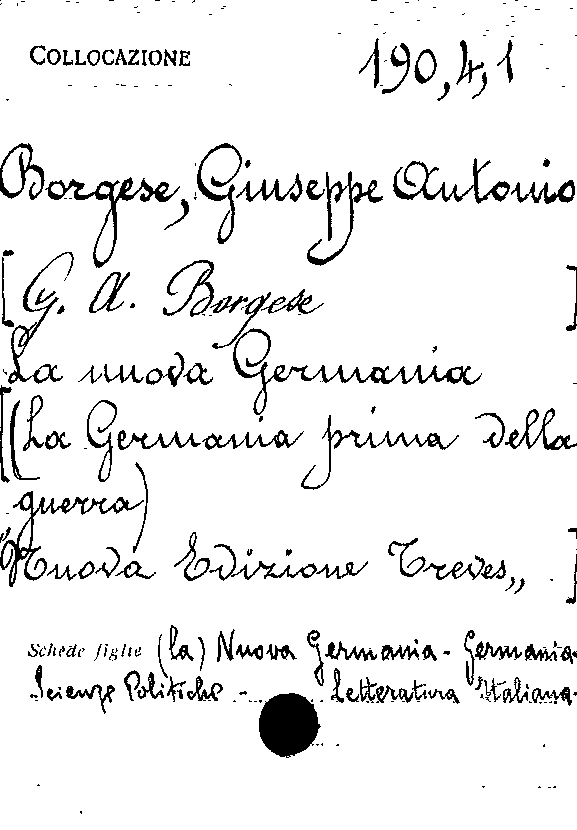 COLLOCAZIONE 190,4,1
Borgese, Giuseppe Antonio
[G. A. Borgese]
La nuova Germania
[(La Germania prima della
guerra)
"Nuova Edizione Treves„ ]
Schede figlie (la) Nuova Germania - Germania-
Scienze Politiche - Letteratura Italiana-